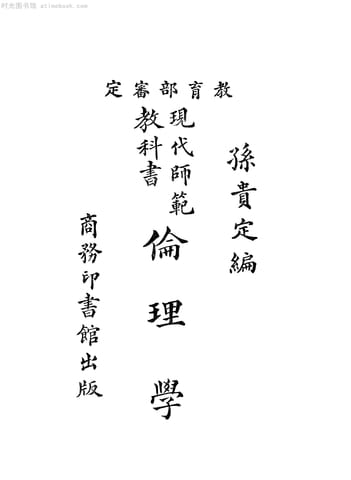 时光图书馆 atimebook.com
教育部審定
孫貴定編
現代師範
教科書
倫理學
商務印書館出版